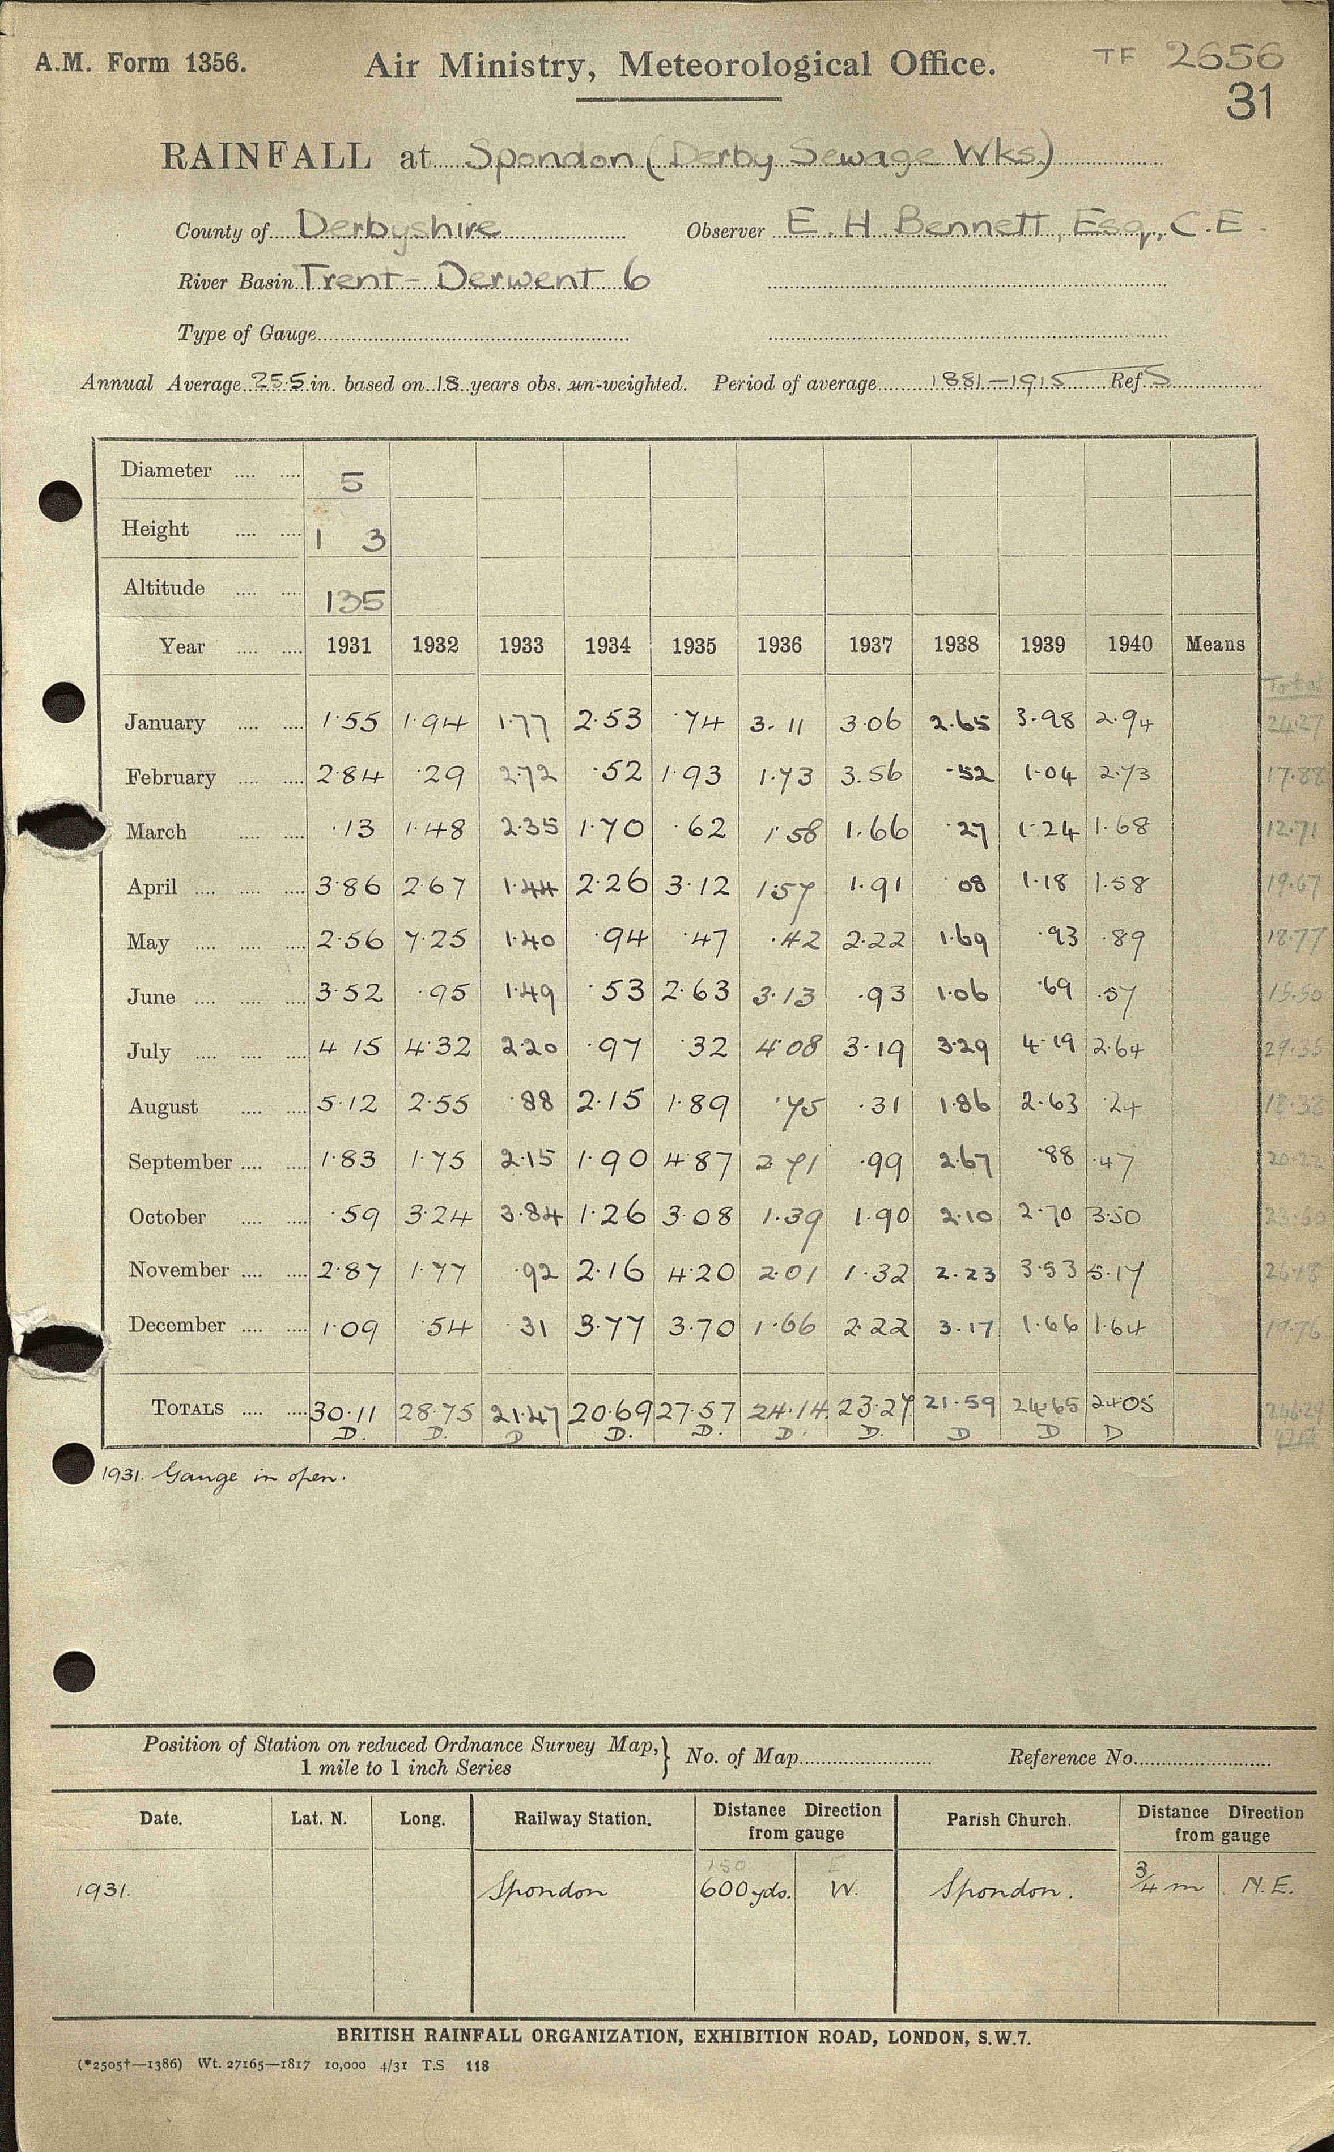 A.M. Form 1356. Air Ministry, Meteorological Office. TF 2656
31
RAINFALL at Spondon (Derby Sewage Wks)
County of Derbyshire Observer E. H. Bennett, Esq., C.E.
River Basin Trent - Derwent 6
Type of Gauge
Annual Average 25.5 in. based on 18 years obs. un-weighted. Period of average 1881-1915 Ref. S
Diameter .... .... 5
Height .... .... 1 3
Altitude .... .... 135
Year .... .... 1931 1932 1933 1934 1935 1936 1937 1938 1939 1940 Means
Total
January .... .... 1.55 1.94 1.77 2.53 .74 3.11 3.06 2.65 3.98 2.94 24.27
February .... .... 2.84 .29 2.72 .52 1.93 1.73 3.56 .52 1.04 2.73 17.88
March .... .... .13 1.48 2.35 1.70 .62 1.58 1.66 .27 1.24 1.68 12.71
April .... .... .... 3.86 2.67 1.44 2.26 3.12 1.57 1.91 08 1.18 1.58 19.67
May .... .... .... 2.56 7.25 1.40 .94 .47 .42 2.22 1.69 .93 .89 18.77
June .... .... .... 3.52 .95 1.49 .53 2.63 3.13 .93 1.06 .69 .57 15.50
July .... .... .... 4 15 4.32 2.20 .97 .32 4.08 3.19 3.29 4.19 2.64 29.35
August .... .... 5.12 2.55 .88 2.15 1.89 .75 .31 1.86 2.63 .24 18.38
September .... .... 1.83 1.75 2.15 1.90 4.87 2.71 .99 2.67 .88 .47 20.22
October .... .... .59 3.24 3.84 1.26 3.08 1.39 1.90 2.10 2.70 3.50 23.60
November .... .... 2.87 1.77 .92 2.16 4.20 2.01 1.32 2.23 3.53 5.17 26.18
December .... .... 1.09 .54 31 3.77 3.70 1.66 2.22 3.17 1.66 1.64 19.76
TOTALS .... .... 30.11 28.75 21.47 20.69 27.57 24.14 23.27 21.59 24.65 24.05 246.29
D. D. D D. D. D. D. D D D
1931. Gauge in open.
Position of Station on reduced Ordnance Survey Map, } No. of Map Reference No.
1 mile to 1 inch Series
Date. Lat. N. Long. Railway Station. Distance Direction from gauge Parish Church. Distance Direction from gauge
150
1931. Spondon 600 yds. W. Spondon. 3/4 m N.E.
BRITISH RAINFALL ORGANIZATION, EXHIBITION ROAD, LONDON, S.W.7.
(*2505†—1386) Wt. 27165—1817 10,000 4/31 T.S 118